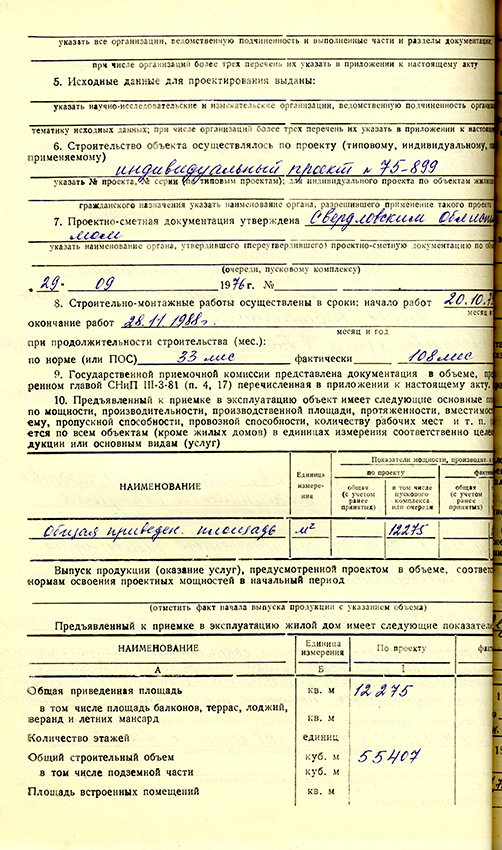 указать все организации, ведомственную подчиненность и выполненные части и разделы документации,
при числе организаций более трех перечень их указать в приложении к настоящему акту
5. Исходные данные для проектирования выданы:
указать научно-исследовательские и изыскательские организации, ведомственную подчиненность
тематику исходных данных; при числе организаций более трех перечень их указать в приложении к
6. Строительство объекта осуществлялось по проекту (типовому, индивидуальному,
применяемому)
индивидуальный проект № 75-899
указать № проекта, № серии (по типовым проектам); для индивидуального проекта по объектам
гражданского назначения указать наименование органа, разрешившего применение такого проекта
7. Проектно-сметная документация утверждена Свердловским
указать наименование органа, утвердившего (переутвердившего) проектно-сметную документацию по
(очереди, пусковому комплексу)
„29" 09 1976 г. №
8. Строительно-монтажные работы осуществлены в сроки: начало работ 20.10.
месяц
окончание работ 28.11.1988г.
месяц и год
при продолжительности строительства (мес.):
по норме (или ПОС) 33 мес фактически 108 мес
9. Государственной приемочной комиссии представлена документация в объеме,
ренном главой СНиП III-3-81 (п. 4, 17) перечисленная в приложении к настоящему акту.
10. Предъявленный к приемке в эксплуатацию объект имеет следующие основные
по мощности, производительности, производственной площади, протяженности,
ему, пропускной способности, провозной способности, количеству рабочих мест и т. п.
ется по всем объектам (кроме жилых домов) в единицах измерения соответственно
дукции или основным видам (услуг)
НАИМЕНОВАНИЕ
Единица измерения
Показатели мощности,
по проекту
общая (с учетом ранее принятых)
в том числе пускового комплекса или очереди
общая (с учетом ранее принятых)
Общая приведен. площадь м² 12275
Выпуск продукции (оказание услуг), предусмотренной проектом в объеме,
нормам освоения проектных мощностей в начальный период
(отметить факт начала выпуска продукции с указанием объема)
Предъявленный к приемке в эксплуатацию жилой дом имеет следующие
НАИМЕНОВАНИЕ Единица измерения По проекту
А Б 1
Общая приведенная площадь кв. м 12275
в том числе площадь балконов, террас, лоджий,
веранд и летних мансард кв. м
Количество этажей единиц
Общий строительный объем куб. м 55407
в том числе подземной части куб. м
Площадь встроенных помещений кв. м